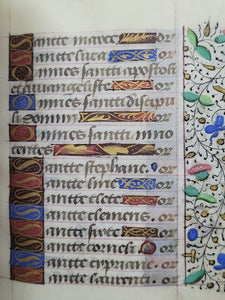 Sancte marce or
Sancte luca or
Omnes sancti apostoli
et euuangeliste or
Omnes sancti discipu
li domini or
Omnes sancti inno
centes or
Sancte stephane or
Sancte line or
Sancte clete or
Sancte clemens or
Sancte sixte or
Sancte corneli or
Sancte cypriane or
Sancte laurenti or